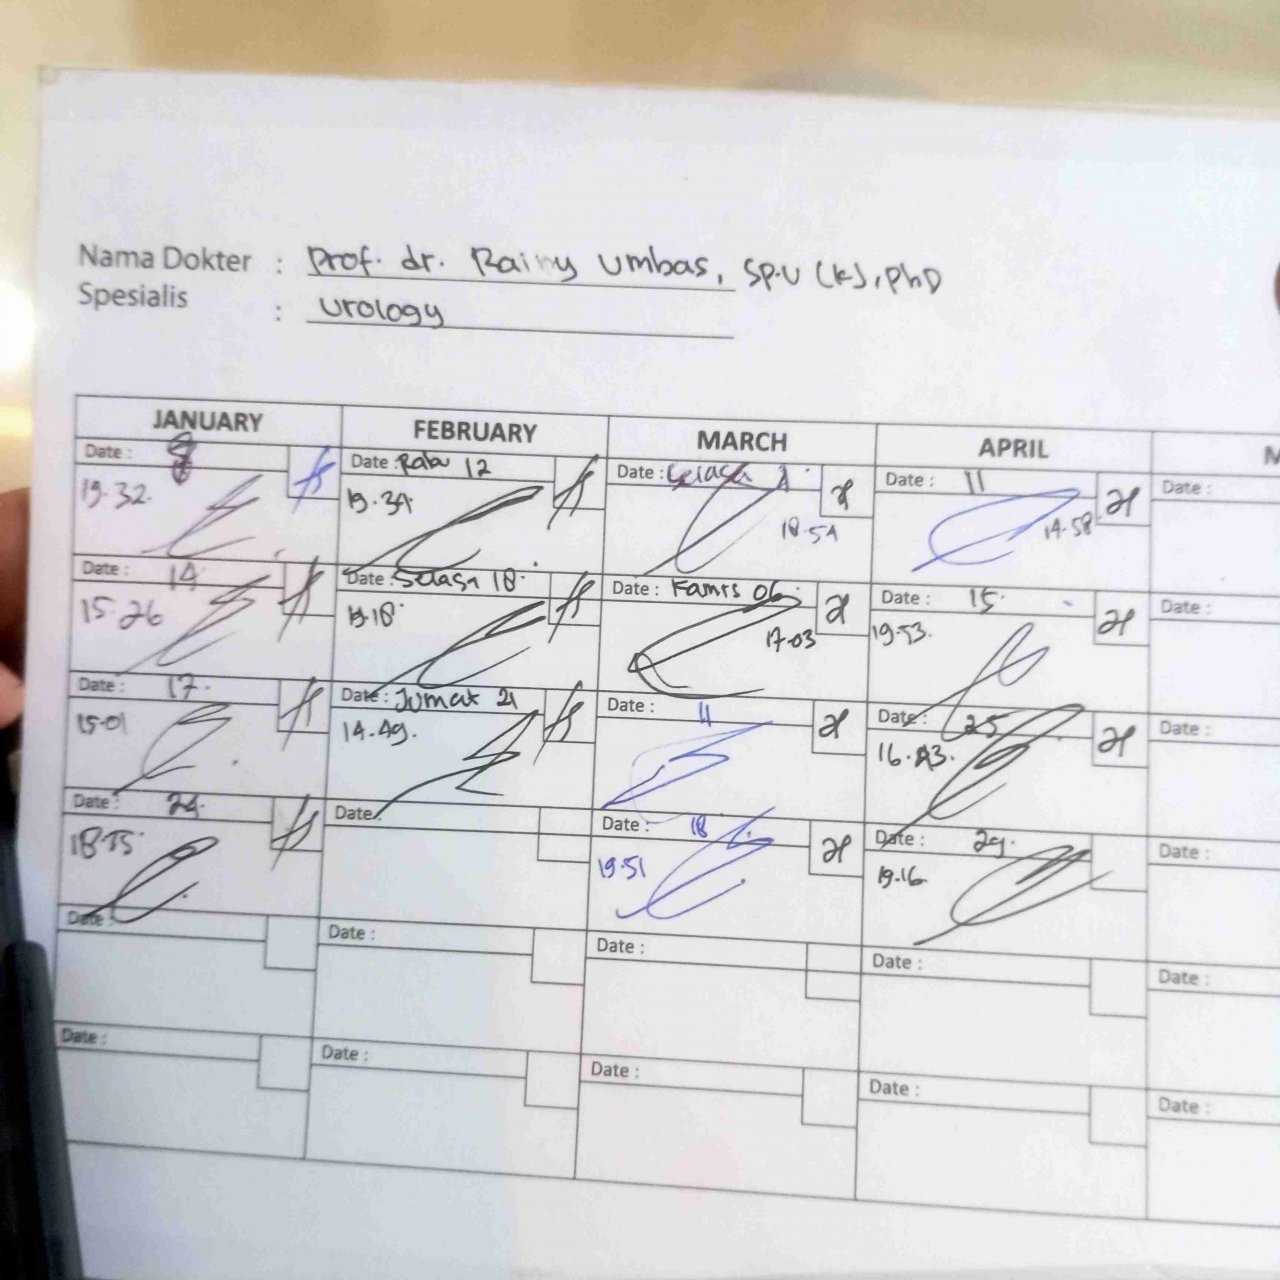 Nama Dokter : Prof. dr. Rainy Umbas, Sp.U (K), PhD
Spesialis : Urology
JANUARY FEBRUARY MARCH APRIL M
Date : 8 Date : Rabu 12 Date : Selasa Date : 11 Date :
19.32 19.34 18.54 14.58
Date : 14 Date : Selasa 18 Date : Kamis 06 Date : 15 Date :
15.26 19.18 17.03 19.53
Date : 17 Date : Jumat 21 Date : 11 Date : 25 Date :
15.01 14.49 16.43
Date : 24 Date : Date : 18 Date : 29 Date :
18.55 19.51 19.16
Date : Date : Date : Date : Date :
Date : Date : Date : Date : Date :